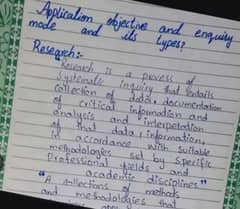 Application objectives and enquiry
mode and its types?
Research:-
Research is a process of
Systematic inquiry that entails
collection of data, documentation
of critical information and
analysis and interpretation
of that data, information,
in accordance with suitable
methodologies set by specific
Professional fields and
academic disciplines"
"A collections of methods
and methodologies that